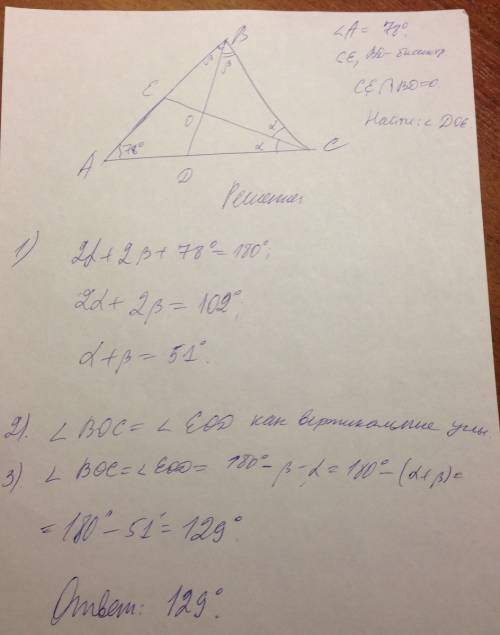 B
β β
E
O
α
α
C
A
78°
D
∠A = 78°
CE, BD - биссектр
CE ∩ BD = O
Найти: ∠ DOE
Решение:
1)
2α + 2β + 78° = 180°;
2α + 2β = 102°;
α + β = 51°.
2). ∠ BOC = ∠ EOD как вертикальные углы
3) ∠ BOC = ∠ EOD = 180° - β - α = 180° - (α + β) =
= 180° - 51° = 129°.
Ответ: 129°.